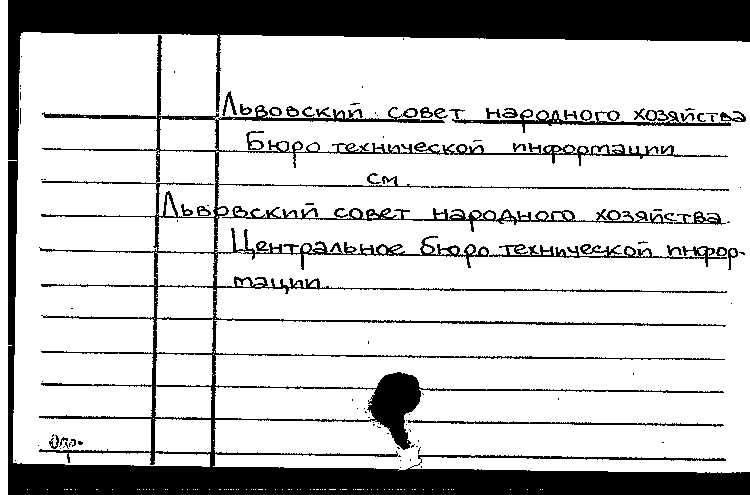 Львовский совет народного хозяйства
Бюро технической информации
см.
Львовский совет народного хозяйства.
Центральное бюро технической инфор-
мации.